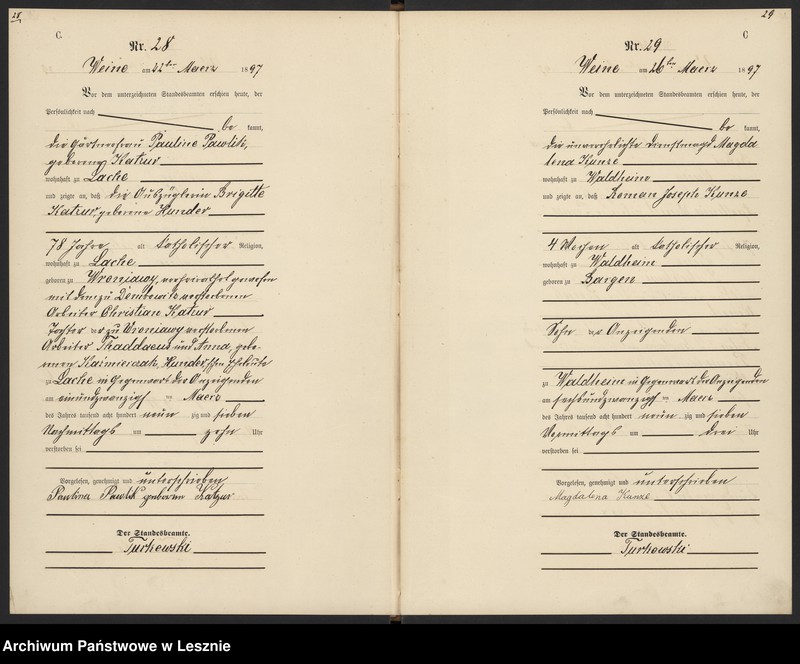 28
C.
Nr. 28
Weine am 22ten Maerz 1897
Vor dem unterzeichneten Standesbeamten erschien heute, der
Persönlichkeit nach
be kannt,
die Gärtnerfrau Pauline Pawlik,
geborene Katzur
wohnhaft zu Lache
und zeigte an, daß die Auszüglerin Brigitte
Katzur, geborene Hunder
78 Jahre alt katholischer Religion,
wohnhaft zu Lache
geboren zu Wreniawy, verheirathet gewesen
mit dem zu verstorbenen
Arbeiter Christian Katzur
Tochter der zu Wreniawy verstorbenen
Arbeiter Thaddaeus und Anna, gebo-
renen Hunder'schen Eheleute
zu Lache in Gegenwart der Anzeigenden
am einundzwanzigsten Maerz
des Jahres tausend acht hundert neun zig und sieben
Nachmittags um zehn Uhr
verstorben sei
Vorgelesen, genehmigt und unterschrieben
Paulina Pawlik geborene Katzur
Der Standesbeamte.
Turkowski
29
C
Nr. 29
Weine am 26ten Maerz 1897
Vor dem unterzeichneten Standesbeamten erschien heute, der
Persönlichkeit nach
be kannt,
die unverehelichte Dienstmagd Magda
lena Kunze
wohnhaft zu Waldheim
und zeigte an, daß Roman Joseph Kunze
4 Wochen alt katholischer Religion,
wohnhaft zu Waldheim
geboren zu Bargen
Sohn der Anzeigenden
zu Waldheim in Gegenwart der Anzeigenden
am sechsundzwanzigsten Maerz
des Jahres tausend acht hundert neun zig und sieben
Vormittags um drei Uhr
verstorben sei
Vorgelesen, genehmigt und unterschrieben
Magdalena Kunze
Der Standesbeamte.
Turkowski
Archiwum Państwowe w Lesznie